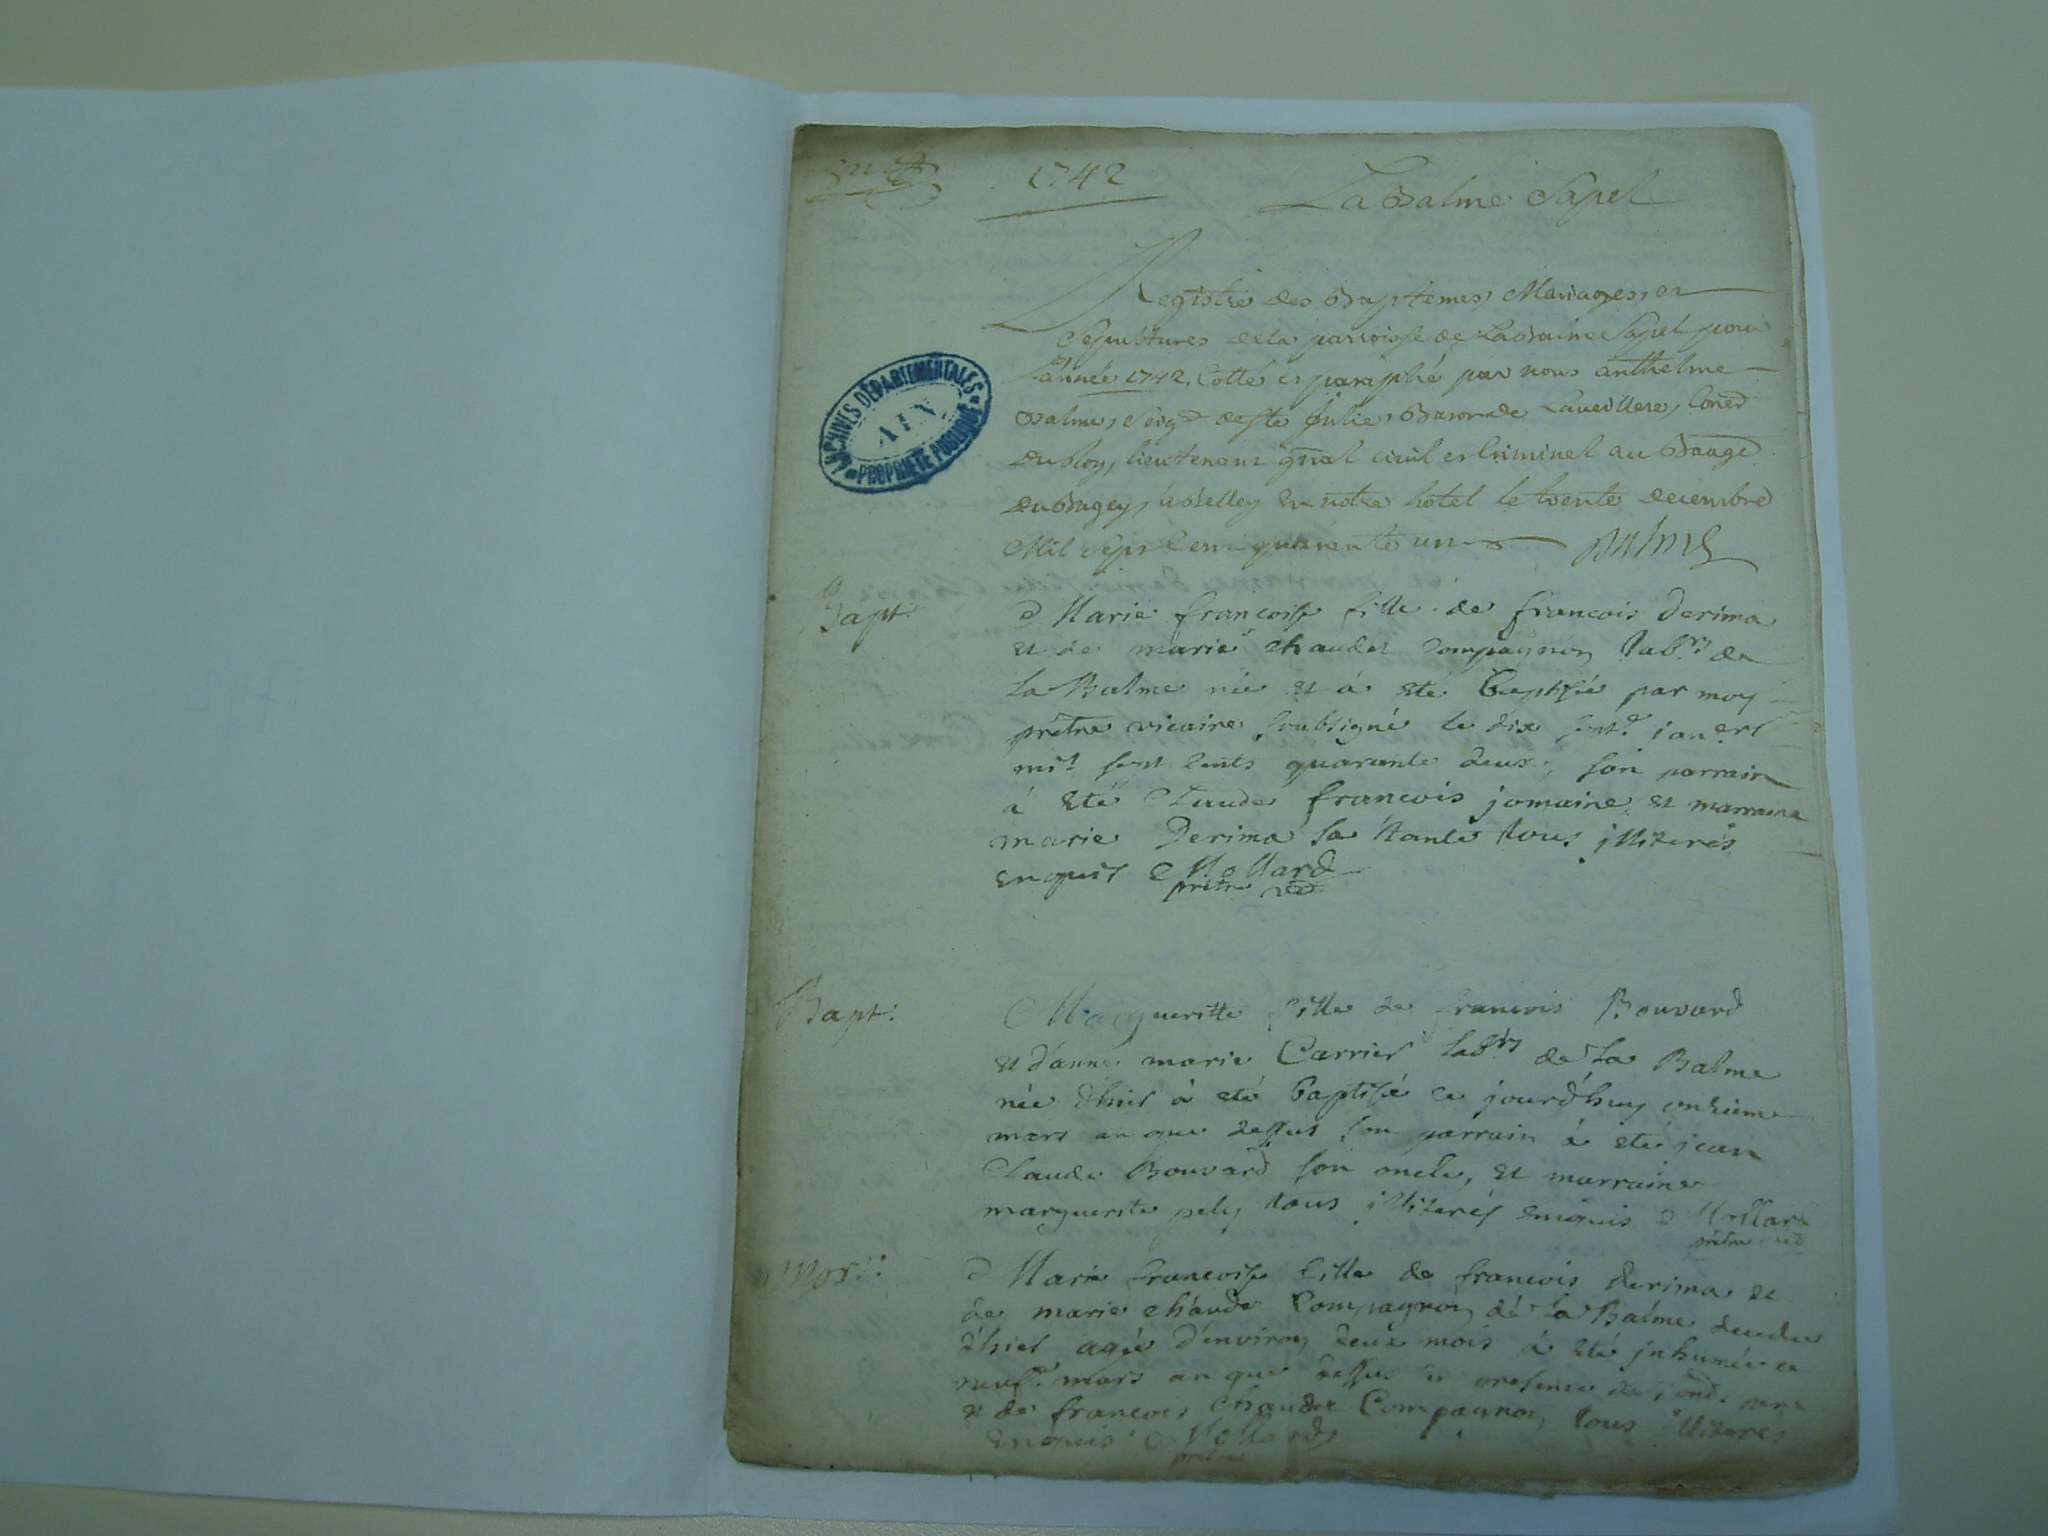 1742
La Balme Sapel
Registre des Baptemes, Mariages, et
Sepultures dela parroisse de La Balme Sapel pour
L'année 1742. Cotté et paraphé par nous anthelme
Balme, Seigr de Ste Julie, Baron de Coned
Du Roy, lieutenant gnal civil et criminel au Baage
du Bugey, à Belley en notre hotel le trente decembre
Mil Sept Cent quarente un Balme
ARCHIVES DÉPARTEMENTALES
AIN
PROPRIÉTÉ PUBLIQUE
Bapt:
Marie francoise fille de francois Derima
et de marie chaudet Compagnon labrs de
la Balme née et à eté baptisée par moy
prêtre vicaire soubsigné le dix janer
mil sept cents quarante deux, son parrain
à eté Claude francois jomaine et marraine
marie Derima sa tante tous illiterés
enquis Mollard
prêtre
Bapt:
Margueritte fille de francois Bouvard
et d'anne marie Carrier labrs de la Balme
née d'hier à eté baptisée ce jourd'huy onzieme
mars an que dessus son parrain à eté jean
Claude Bouvard son oncle, et marraine
marguerite pely tous illiterés enquis Mollard
prêtre
Mort:
Marie francoise fille de francois derima et
de marie chaude Compagnon de la Balme
d'hier agée d'environ deux mois à eté inhumée ce
mars an que dessus en presence de
et de francois Chaudet Compagnon, tous illiterés
enquis Mollard
prêtre